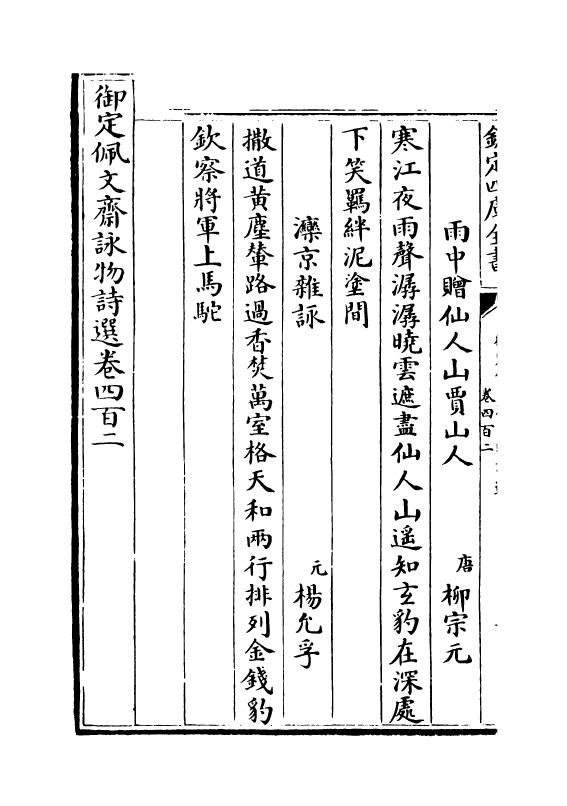 欽定四庫全書
卷四百二
雨中贈仙人山賈山人 唐 柳宗元
寒江夜雨聲潺潺曉雲遮盡仙人山遥知玄豹在深處
下笑羈絆泥塗間
灤京雜詠 元 楊允孚
撒道黃塵輦路過香焚萬室格天和兩行排列金錢豹
欽察將軍上馬駝
御定佩文齋詠物詩選卷四百二